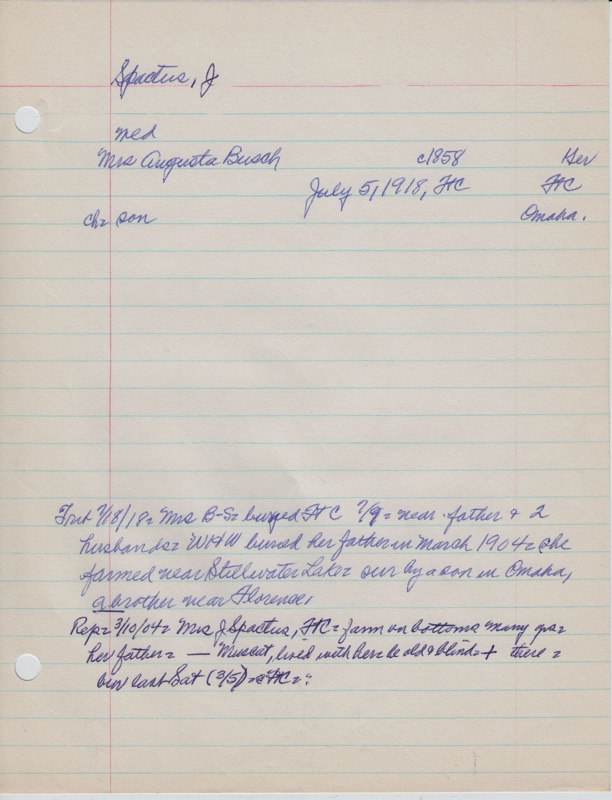 Spactus, J
med
Mrs Augusta Busch c1858 Ger
July 5, 1918, FtC FtC
ch= son Omaha.
Trib 7/18/18= Mrs B-S= buryed FtC 7/9= near father & 2
husbands= WHW buried her father in March 1904= she
farmed near Stillwater Lake= sur by a son in Omaha,
a brother near Florence,
Rep= 3/10/04= Mrs J Spactus, FtC= farm on bottoms many yrs=
her father= — Muscat, lived with her= be old & blind= + there=
bur last Sat (3/5) = FtC=